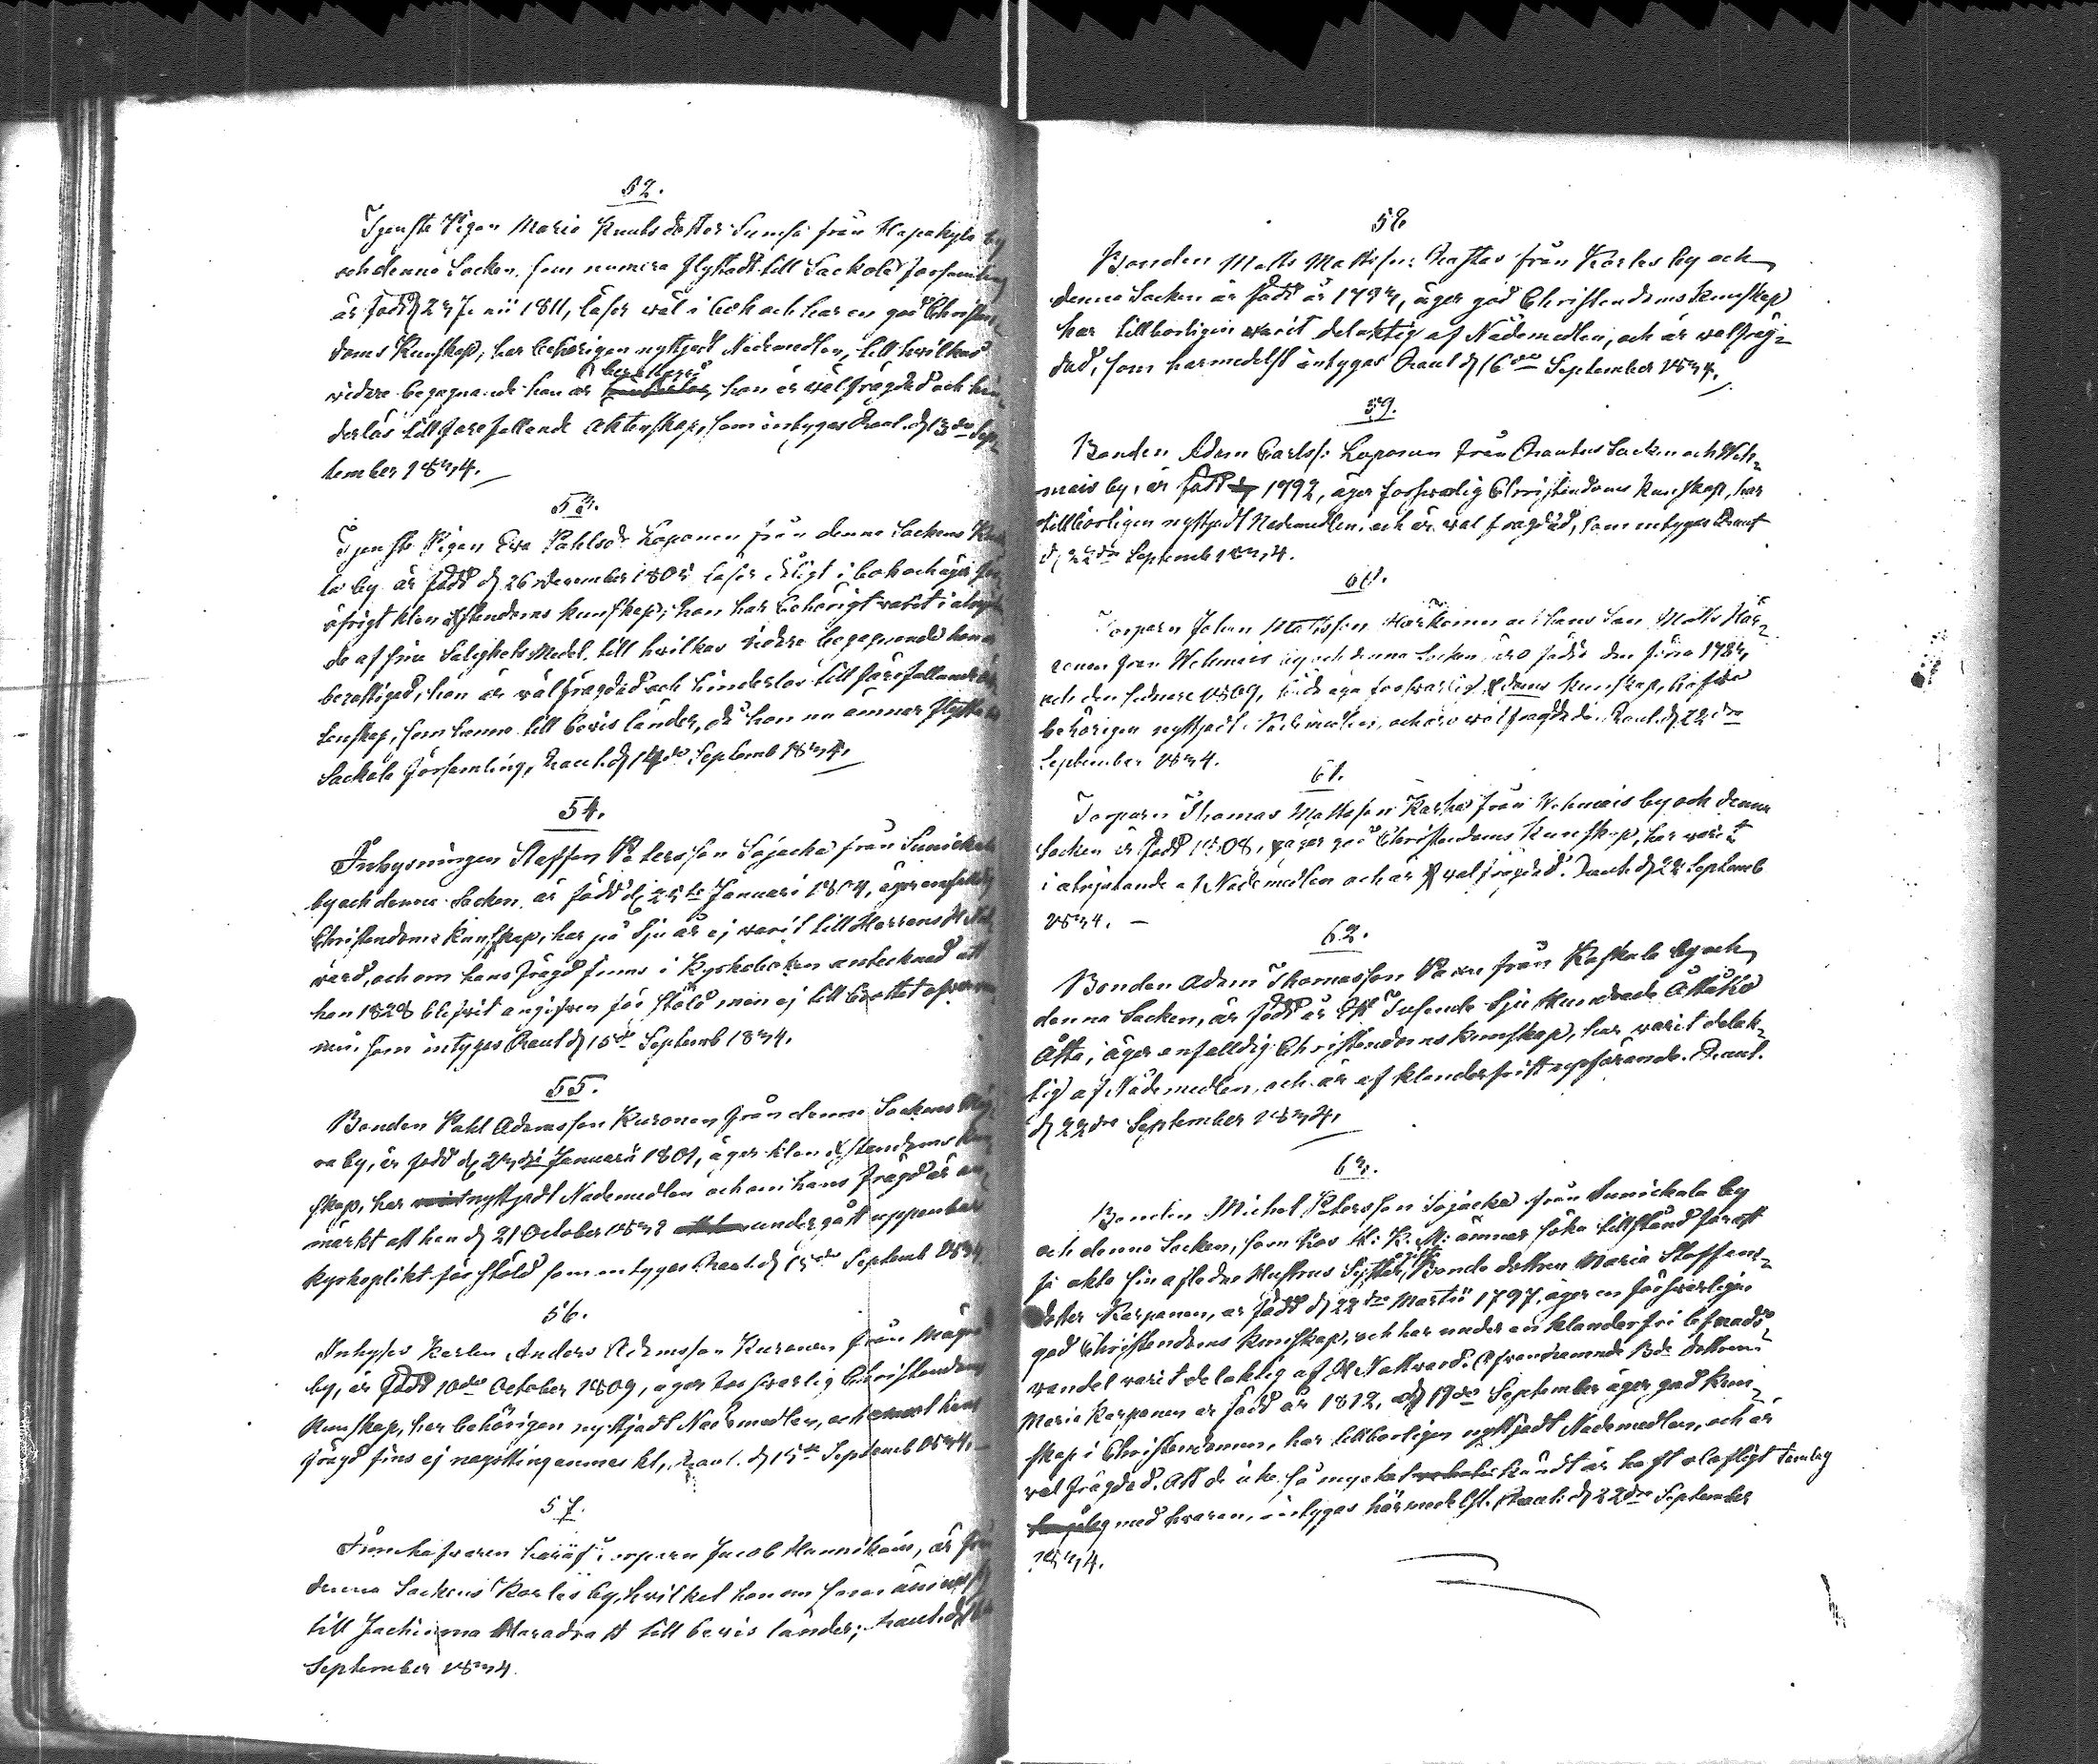 52.
Tjenste Pigan Maria Knuts dotter Sumsa från Hapakyla by
och denna Socken, som numera flyttadt till Sackola församling
är född d 23 Junii 1811, läser wäl i bok och har en god Christen¬
doms Kunskap, har behörigen nyttjadt Nademedlen, till hvilkas
berättigad
vidare begagnande hon är hon är välfrägdad och hin¬
derlös till förefallande äktenskap, som intygas Raut. d 13de Sep¬
tember 1834.
53.
Tjenste Pigan Eva Påhlsdr Loponen från denna Sockens
la by är född d 26 December 1805 läser i bok och äger
öfrigt klen Xstendoms kunskap; hon har behörigt varit i
de af sina Salighets Medel, till hvilkas vidare begagnande hon är
berättigad, hon är välfrägdad och hinderlös till förefallande äk
tenskap, som henne till bevis länder, då hon nu ämnar flytta
Sackola församling, Raut. d 14de Septemb 1834.
54.
Inhysningen Staffan Petersson Sojacka från Sunickala
by och denna Socken är född d 25te Januari 1804, äger enfaldig
Christendoms Kunskap, har på Sju år ej varit till Herrens H Natt
vard, och om hans frägd finns i Kyrkoboken antecknad att
han 1828 blifvit angifven för stöld men ej till brottet
som intygas Raut d 15de Septemb 1834.
55.
Bonden Påhl Adamsson Kuronen från denna Sockens
ra by, är född d 23die Januarii 1801, äger klen Xstendoms kun
skap, har nyttjadt Nademedlen och om hans frägd är an
märkt att han d 21 October 1832 undergått uppenbar
kyrkoplikt för stöld som intygas Raut. d 15de Septemb 1834
56.
Inhyses Karlen Anders Adamsson Kuronen från
by, är född 10de October 1809, äger försvarlig Christendoms
Kunskap, har behörigen nyttjadt Nademedlen, och om hans
frägd fins ej nagotting anmerkt, Raut. d 15de Septemb 1834.
57.
Torparn Jacob Hannikain, är från
denna Sockens Karles by, hvilket honom som ämnar
till Jackimma Haradra tt till bevis länder; Raut. d
September 1834
58
Bonden Matts Mattsson Rastas från Karles by och
denna Socken är född år 1793, äger god Christendoms Kunskap
har tillbörligen varit delaktig af Nådemedlen, och är välfräj¬
dad, som harmedelst intygas Raut d 16de September 1834.
59.
Bonden Adam Carlss: Loponen från Rautus Socken och Weh¬
mais by, är född 1792, äger försvarlig Christendoms Kunskap, har
tillbörligen nyttjadt Nademedlen, och är väl frägdad, som intygas Raut
d 22dra Septemb 1834.
60.
Torparn Johan Mattsson Härkönen och hans Son Matts Här¬
könen från Wehmais by och denna Socken äro födde den förra 1783,
och den sednare 1809, både äga försvarlig Xdoms Kunskap, hafva
behörigen nyttjadt Nademedlen, och äro välfragdade. Raut. d 22dra
September 1834.
61.
Torparn Thomas Mattsson Karhu från Wehmais by och denna
Socken är född 1808, äger god Christendoms Kunskap, har varit
i atnjutande af Nademedlen och är välfrägdad. Raut. d 22 Septemb
1834. —
62.
Bonden Adam Thomasson Paxu från Raskala by och
denna Socken, är född år Ett Tusende Sju Hundrade Åttatio
Åtta, äger enfalldig Christendoms kunskap, har varit delak¬
tig af Nådemedlen, och är af klanderfritt uppförande. Raut.
d 22dra September 1834.
63.
Bonden Michel Petersson Sojacka från Sunickala by
och denna Socken, som hos H: K: M: ämnar söka tillstånd för att
få äkta sin aflidne Hustrus Syster, Bonde dottren Maria Staffans¬
dotter Karponen, är född d 22dra Martii 1797, äger en försvarligen
god Christendoms kunskap, och har under en klanderfri lefnads
vandel varit delaktig af H Nattvard. Ofvannämnde Bde dottern
Maria Karponen är född år 1812, d 19de September äger god kun¬
skap i Christendomen, har tillbörligen nyttjadt Nademedlen, och är
väl frägdad. Att de icke så mycket kändt är haft olofligt Tämlag
med hvaran, intygas härmedelst. Raut: d 22dra September
1834.